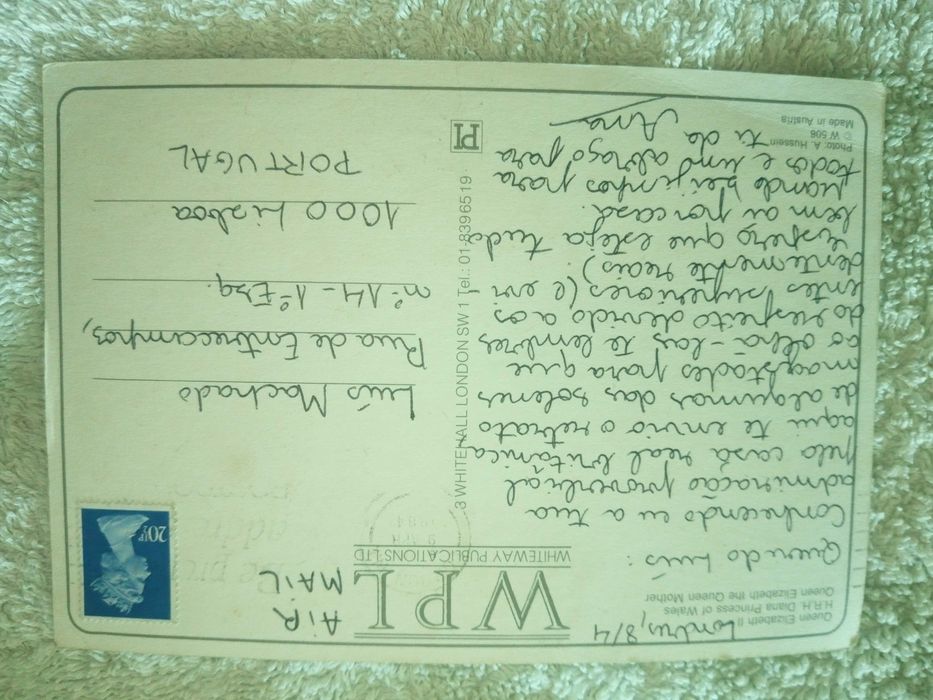 Queen Elizabeth II
H.R.H. Diana Princess of Wales
Queen Elizabeth the Queen Mother
Londres, 8/4
Querido Luís:
Conhecendo eu a tua
admiração proverbial
pela casa real britânica
aqui te envio o retrato
de algumas das solenes
majestades para que
ao olhá-las te lembres
do respeito devido aos
entes superiores (e evi-
dentemente reais).
Espero que esteja tudo
bem aí por casa.
Mando beijinhos para
todos e um abraço para
ti da
Ana
Photo: A. Hussein
© W 508
Made in Austria
WPL
WHITEWAY PUBLICATIONS LTD
3 WHITEHALL LONDON SW 1 Tel.: 01-8396519
PI
AIR
MAIL
20½P
Luís Machado
Rua de Entrecampos,
nº 14 - 1º Esq.
1000 Lisboa
PORTUGAL